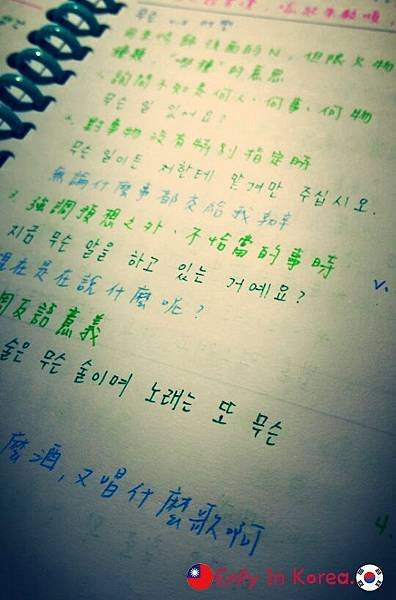 무슨
用來修飾後面的N, 但限人物
種類, "哪種"的意思
1. 詢問不知是何人、何事、何物
무슨 일 있어요?
2. 對事物沒有特別指定時
무슨 일이든 저한테 맡겨만 주십시오.
無論什麼事都交給我吧
3. 強調預想之外、不恰當的事時
지금 무슨 말을 하고 있는 거예요?
現在是在說什麼呢?
語意義
술은 무슨 술이며 노래는 또 무슨
麼酒, 又唱什麼歌啊
4.
Enly In Korea.